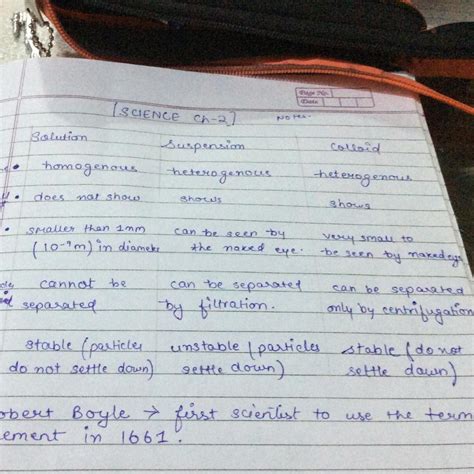 Page No.
Date
[SCIENCE Ch-2] NOTES.
Solution Suspension Colloid
• homogenous heterogenous heterogenous
• does not show shows shows
• smaller than 1mm can be seen by very small to
(10⁻⁹m) in diameter the naked eye. be seen by naked eye
cannot be can be separated can be separated
separated by filtration. only by centrifugation
stable (particles unstable (particles stable (do not
do not settle down) settle down) settle down)
obert Boyle → first scientist to use the term
ement in 1661.